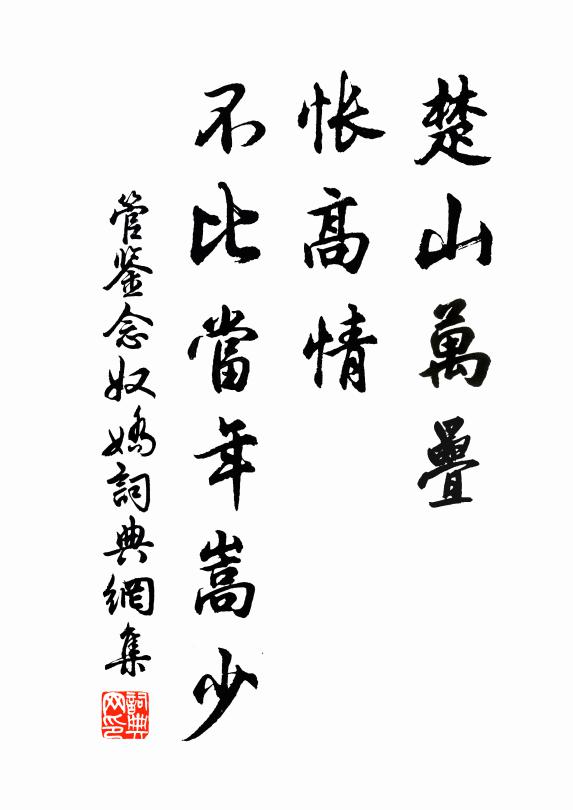 楚山萬疊
悵高情
不比當年嵩少
管鑒念奴嬌詞典網集
詞典
网印